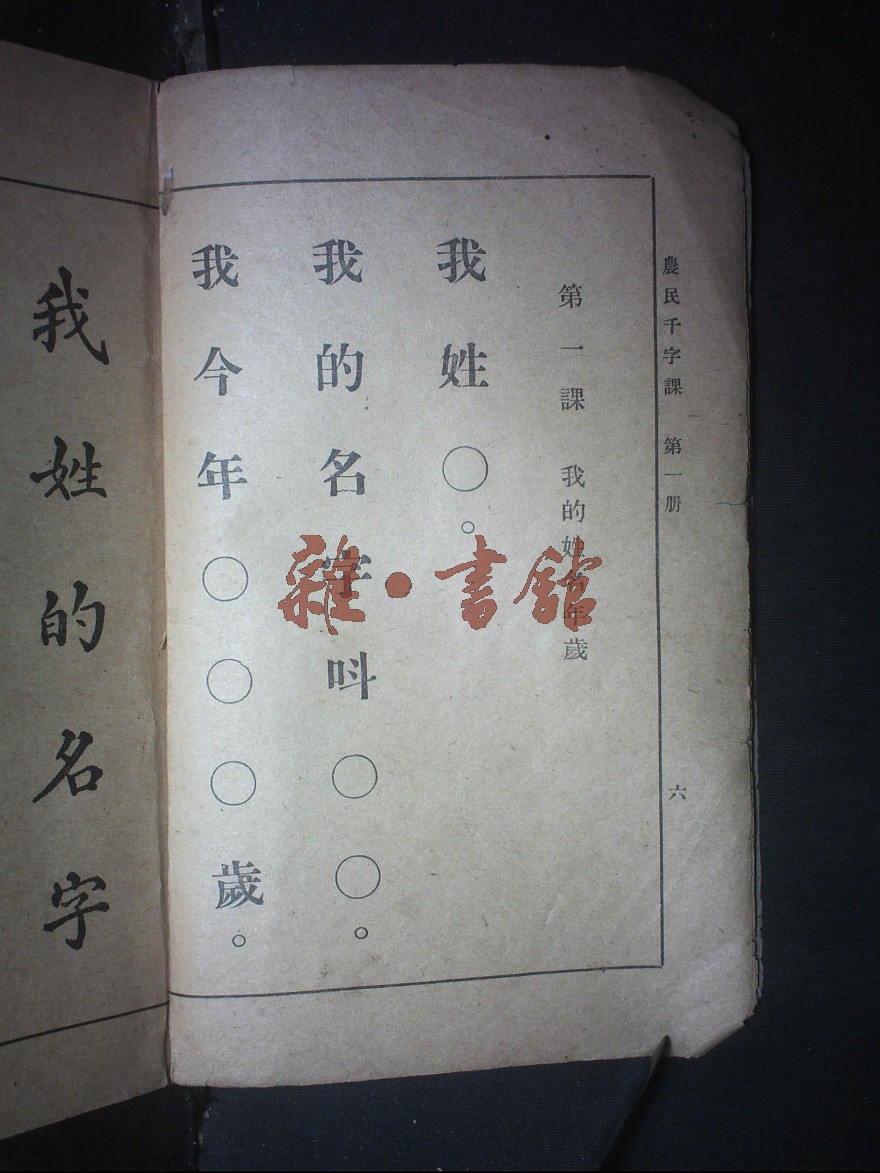 農民千字課 第一册
六
第一課 我的姓名年歲
我姓〇。
我的名字呌〇〇。
我今年〇〇〇歲。
我姓的名字
雜·書館